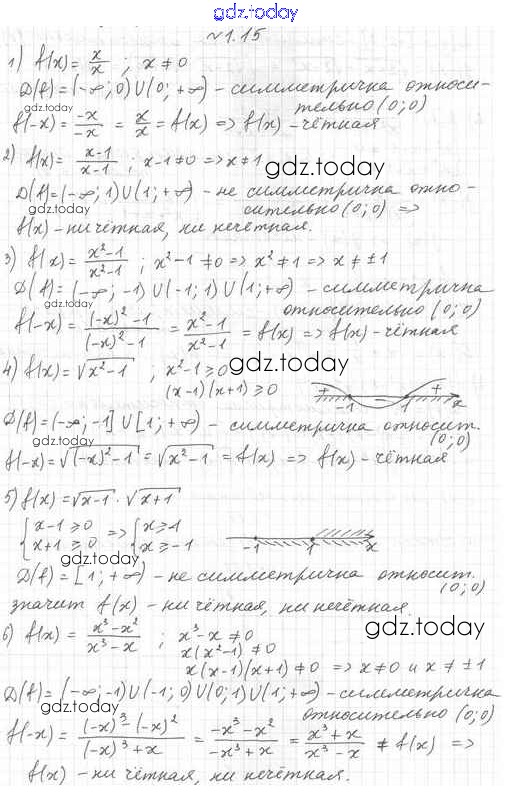 gdz.today
№1.15
1) f(x) = x/x ; x ≠ 0
D(f) = (-∞; 0) ∪ (0; +∞) - симметрична относи-
gdz.today
тельно (0; 0)
f(-x) = -x/-x = x/x = f(x) => f(x) - чётная
2) f(x) = x-1/x-1 ; x-1 ≠ 0 => x ≠ 1
gdz.today
D(f) = (-∞; 1) ∪ (1; +∞) - не симметрична отно-
gdz.today
сительно (0; 0) =>
f(x) - ни чётная, ни нечётная.
3) f(x) = x²-1/x²-1 ; x²-1 ≠ 0 => x² ≠ 1 => x ≠ ±1
D(f) = (-∞; -1) ∪ (-1; 1) ∪ (1; +∞) - симметрична
gdz.today
относительно (0; 0)
f(-x) = (-x)²-1/(-x)²-1 = x²-1/x²-1 = f(x) => f(x) - чётная
gdz.today
4) f(x) = √x²-1 ; x²-1 ≥ 0
(x-1)(x+1) ≥ 0
+ -1 - 1 + x
D(f) = (-∞; -1] ∪ [1; +∞) - симметрична относит.
gdz.today
(0; 0)
f(-x) = √(-x)²-1 = √x²-1 = f(x) => f(x) - чётная
5) f(x) = √x-1 · √x+1
{ x-1 ≥ 0 => { x ≥ 1
x+1 ≥ 0 x ≥ -1
-1 1 x
gdz.today
D(f) = [1; +∞) - не симметрична относит.
(0; 0)
значит f(x) - ни чётная, ни нечётная.
gdz.today
6) f(x) = x³-x²/x³-x ; x³-x ≠ 0
x(x²-1) ≠ 0
x(x-1)(x+1) ≠ 0 => x ≠ 0 и x ≠ ±1
D(f) = (-∞; -1) ∪ (-1; 0) ∪ (0; 1) ∪ (1; +∞) - симметрична
gdz.today
относительно (0; 0)
f(-x) = (-x)³-(-x)²/(-x)³+x = -x³-x²/-x³+x = x³+x/x³-x ≠ f(x) =>
f(x) - ни чётная, ни нечётная.